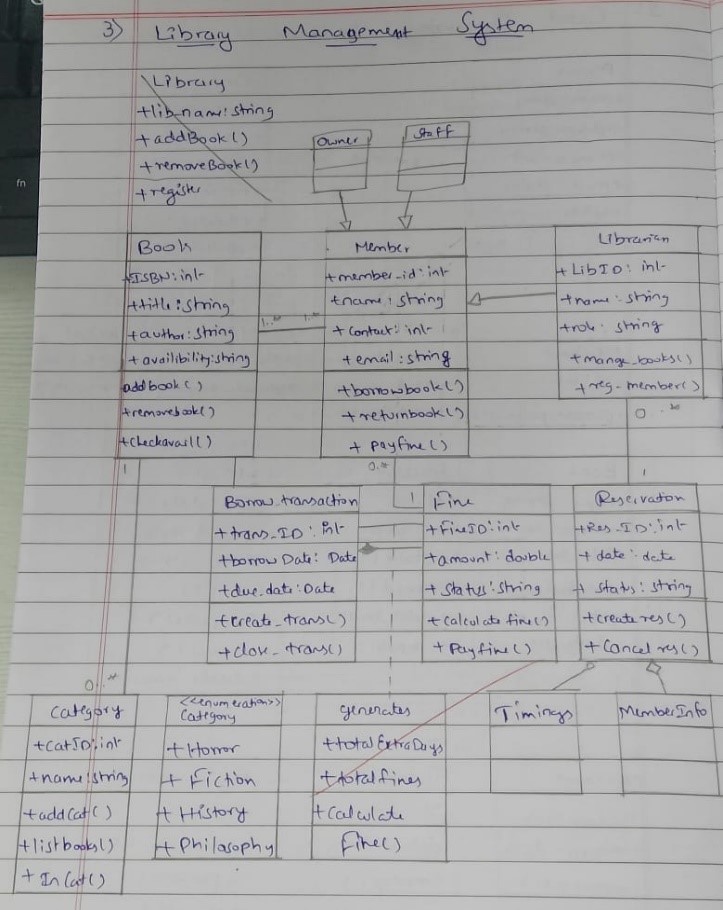 3) Library Management System
Library
+lib_name: string
+addBook()
+removeBook()
+register
Owner
Staff
Book
+ISBN: int
+title: string
+author: string
+availibility: string
addbook()
+removebook()
+checkavail()
Member
+member_id: int
+name: string
+contact: int
+email: string
+borrowbook()
+returnbook()
+payfine()
Librarian
+LibID: int
+name: string
+role: string
+mange_books()
+reg-member()
1..*
1..*
0..*
1
0..*
1
1
Borrow_transaction
+trans_ID: int
+borrow Date: Date
+due_date: Date
+create_trans()
+close_trans()
Fine
+FineID: int
+amount: double
+Status: String
+calculate fine()
+Payfine()
Reservation
+Res_ID: int
+date: date
+status: string
+create res()
+Cancel res()
0..*
Category
+CatID: int
+name: string
+addCat()
+listbooks()
+InCat()
<<enumeration>>
Category
+Horror
+Fiction
+History
+Philosophy
generates
+totalExtraDays
+totalfines
+Calculate
Fine()
Timings
MemberInfo
fn